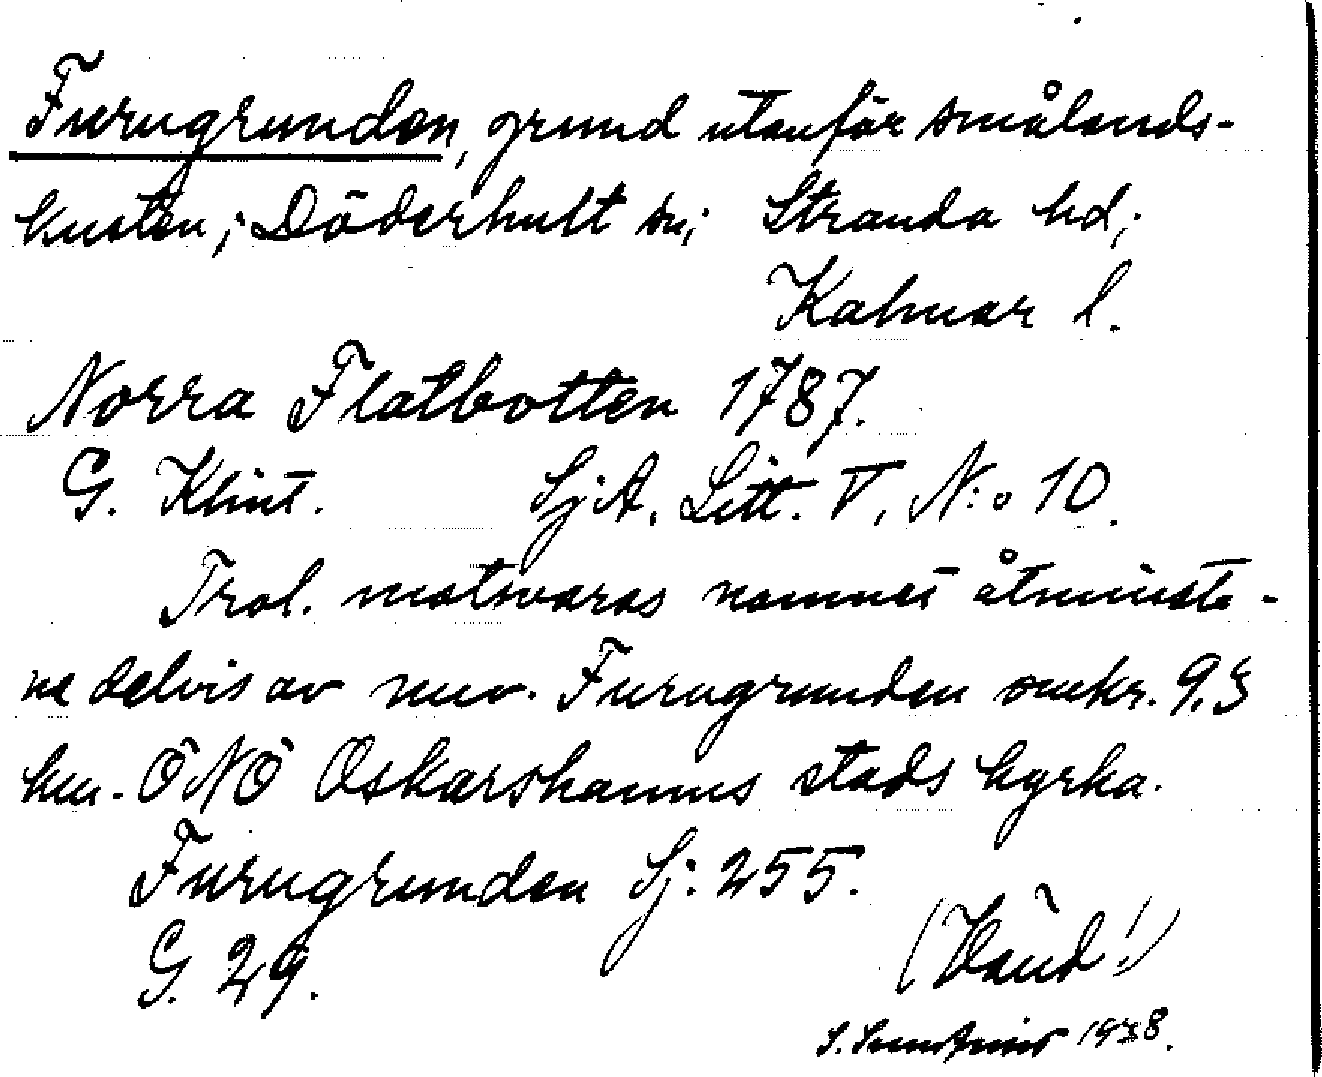 Furugrunden, grund utanför smålands-
kusten; Döderhult sn; Stranda hd;
Kalmar l.
Norra Flatbotten 1787.
G. Klint. Sj.A. Litt. V, N:o 10.
Trol. motsvaras namnet åtminsto-
ne delvis av nuv. Furugrunden omkr. 9.5
km. ÖNÖ Oskarshamns stads kyrka.
Furugrunden Sj: 255.
G. 29.
(Vänd!)
S. 1938.